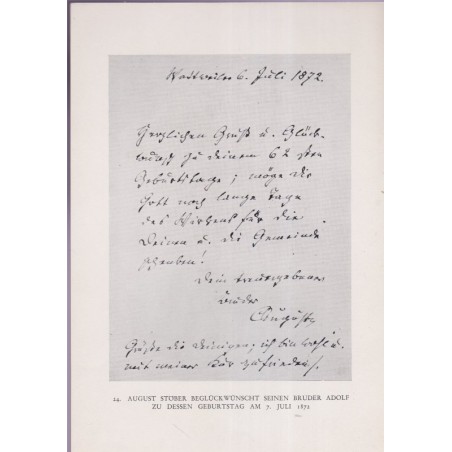 Wattweiler 6. Juli 1872.
Herzlichen Gruß u. Glück-
wunsch zu deinem 62 sten
Geburtstage; möge dir
Gott noch lange Tage
des Wirkens für die
Deinen u. die Gemeinde
schenken!
Dein treuergebener
Bruder
August
Grüße die Deinigen; ich bin wohl u.
mit meiner Kur zufrieden.
24. AUGUST STÖBER BEGLÜCKWÜNSCHT SEINEN BRUDER ADOLF
ZU DESSEN GEBURTSTAG AM 7. JULI 1872